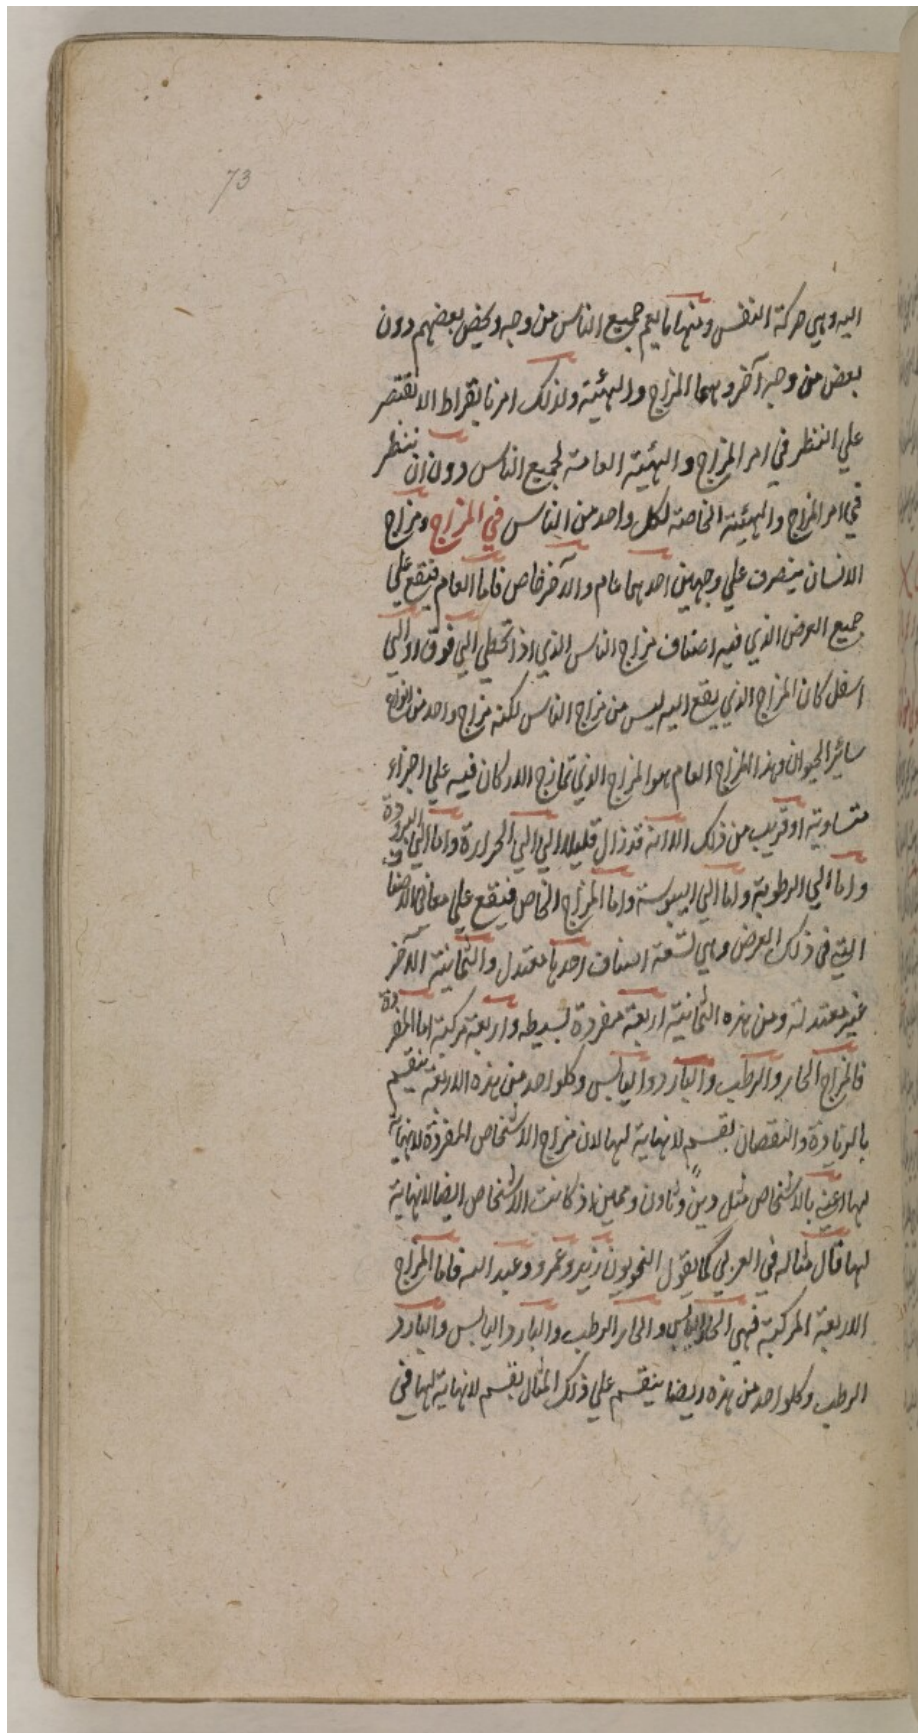 73
اليه وهي حركة النفس ومنها ما يعم جميع الناس من وجه ويخص بعضهم دون
بعض من وجه آخر وهما المزاج والهيئة ولذلك امرنا بقراط الا نقتصر
علي النظر في امر المزاج والهيئة العامة لجميع الناس دون ان ننظر
في امر المزاج والهيئة الخاصة لكل واحد من الناس في المزاج ومزاج
الانسان يتصرف علي وجهين احدهما عام والآخر خاص فاما العام فيقع علي
جميع العرض الذي فيه اصناف مزاج الناس الذي اذا تخطي الي فوق او الي
اسفل كان المزاج الذي يقع اليه ليس من مزاج الناس لكنه مزاج واحد من انواع
سائر الحيوان وهذا المزاج العام هو المزاج الذي تمازج الاركان فيه علي اجزاء
متساوية او قريب من ذلك الا انه قد زال قليلا الي الي الحرارة واما الي البرودة
واما الي الرطوبة واما الي اليبوسة واما المزاج الخاص فيقع علي معاني الاصناف
التي في ذلك العرض وهي تسعة اصناف احدها معتدل والثمانية الآخر
غير معتدلة ومن هذه الثمانية اربعة مفردة بسيطه واربعة مركبة اما المفردة
فالمزاج الحار والرطب والبارد واليابس وكلواحد من هذه الاربعة ينقسم
بالزيادة والنقصان بقسم لا نهاية لها لان مزاج الاشخاص المفردة لا نهاية
لها اعني بالاشخاص مثل دين وثاون وممين اذ كانت الاشخاص ايضا لا نهاية
لها قال مثاله في العربي كما يقول النحويون زيد وعمرو وعبد الله فاما المزاج
الاربعة المركبة فهي الحار اليابس والحار الرطب والبارد اليابس والبارد
الرطب وكلواحد من هذه ايضا ينقسم علي ذلك المثال بقسم لا نهاية لها في